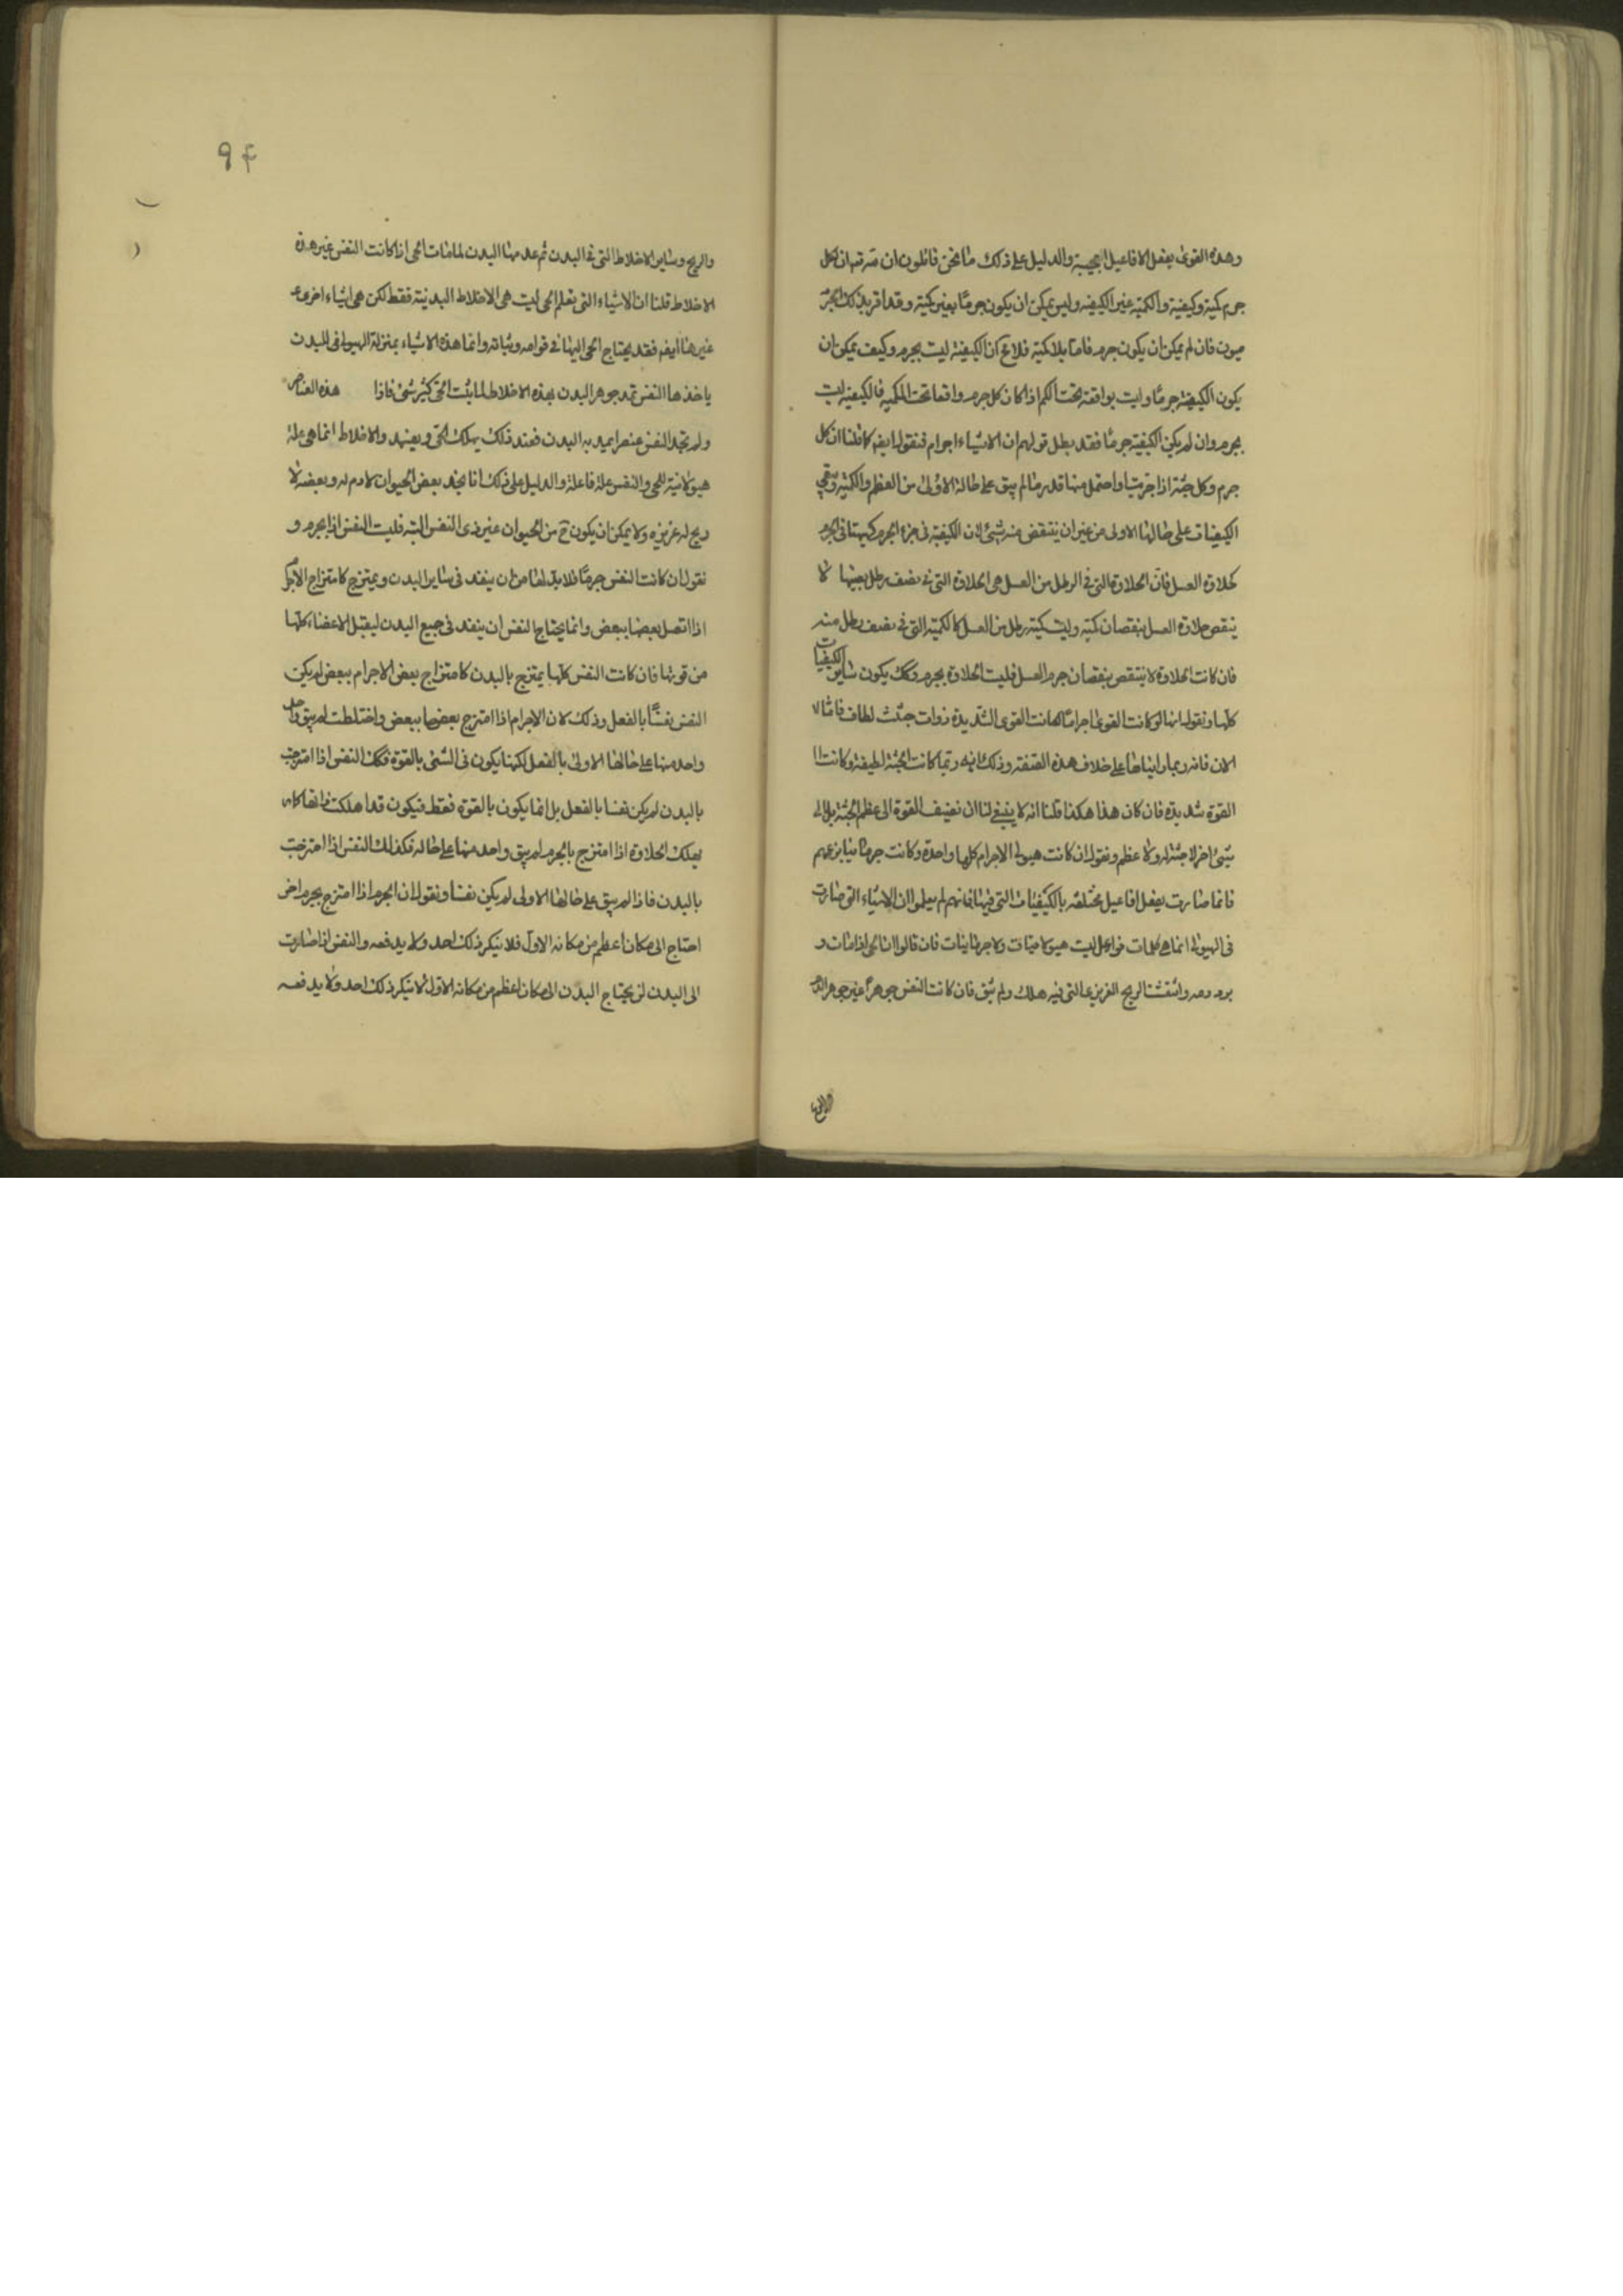 وهذه القوى يفعل الافاعيل العجيبة والدليل على ذلك ما نحن قائلون ان من تيه ان لكل
جرم كمية وكيفية والكمية غير الكيفية وليس يمكن ان يكون جرمًا بغير كمية وقد اقر بذلك الجر
ميون فان لم يمكن ان يكون جرم فاما بلا كمية فلا ان الكيفية ليت بجرم وكيف يمكن ان
يكون الكيفية جرمًا وليت بواقعة تحت الكم اذ كان كل جرم واقعا تحت الكمية فالكيفية ليت
بجرم وان لم يكن الكيفية جرمًا فقد بطل قولهم ان الاشياء اجرام فنقول ايضا كما قلنا ان كل
جرم وكل جثة اذا جزيت او احتمل منها قدر ما لم يبق على حاله الاولى من العظم والكمية ويبقى
الكيفيات على حالها الاولى من غير ان ينتقض منه شيئ لان الكيفية في جزء الجرم كهيئتها في الجرم
كحلاوة العسل فان الحلاوة التي في الرطل من العسل هي الحلاوة التي في نصف رطل بعينها لا
ينقص حلاوة العسل بنقصان كميته وليت كمية رطل من العسل كالكمية التي في نصف رطل منه
فان كانت الحلاوة لا ينتقص بنقصان جرم العسل فليت الحلاوة بجرم وكك يكون ساير الكيفيات
كلها ونقول انها لو كانت القوى اجراما لكانت القوى الشديدة ذوات جثث لطاف فاما الا
الان فانه ربما راينا على خلاف هذه الصفة وذلك انه ربما كانت الجثة لطيفة وكانت ا
القوة شديدة فان كان هذا هكذا قلنا انه لا ينبغي لنا ان نضيف القوة الى عظم الجثة بل الى
شيئ اخر لا جثة له ولا عظم ونقول ان كانت هيولى الاجرام كلها واحدة وكانت جرما بزعمهم
فانما صارت يفعل افاعيل مختلفة بالكيفيات التي فيها فانهم لم يعلموا ان الاشياء التي صارت
في الهيولى انما هي كلمات فواعل ليت هيولانيات ولا جرمانيات فان قالوا ان الحي اذا مات و
برد دمه وانفشت الريح الغريزية التي فيه هلك ولم يبق فان كانت النفس جوهرًا غير جوهر الدم
والريح
والريح وساير الاخلاط التي في البدن ثم عدمها البدن لما مات الحي اذ كانت النفس غير هذه
الاخلاط قلنا ان الاشياء التي تعلم الحي ليت هي الاخلاط البدنية فقط لكن هي اشياء اخرى
غيرها ايضا فقد يحتاج الحي اليها في قوامه وثباته وانما هذه الاشياء بمنزلة الهيولى للبدن
ياخذها النفس تمد جوهر البدن بهذه الاخلاط لما ثبت الحي كثير شيئ فاذا هذه العناصر
ولم تجد النفس عنصرا يمد به البدن فعند ذلك يهلك الحي ويفسد والاخلاط انما هي علة
هيولانية للحي والنفس علة فاعلة والدليل على ذلك انا نجد بعض الحيوان لا دم له وبعضه لا
ريح له غريزيه ولا يمكن ان يكون من الحيوان غير ذي النفس البتة فليت النفس اذا بجرم و
نقول ان كانت النفس جرمًا فلا بد لها من ان ينفد في ساير البدن ويمتزج كامتزاج الاجرام
اذا اتصل بعضها ببعض وانما يحتاج النفس ان ينفد في جميع البدن ليقبل الاعضاء كلها
من قوتها فان كانت النفس كلها يمتزج بالبدن كامتزاج بعض الاجرام ببعض لم يكن
النفس نفسًا بالفعل وذلك لان الاجرام اذا امتزج بعضها ببعض واختلطت لم يبق واحد
واحد منها على حالها الاولى بالفعل لكنها يكون في الشيئ بالقوة فكك النفس اذا امتزجت
بالبدن لم يكن نفسا بالفعل بل انما يكون بالقوة فقط فيكون قد اهلكت ذاتها كما
يهلك الحلاوة اذا امتزج بالجرم لم يبق واحد منها على حاله فكذلك النفس اذا امتزجت
بالبدن فاذا لم يبق على حالها الاولى لم يكن نفسا ونقول ان الجرم اذا امتزج بجرم اخر
احتاج الى مكان اعظم من مكانه الاول فلا ينكر ذلك احد ولا يدفعه والنفس اذا صارت
الى البدن لن يحتاج البدن الى مكان اعظم من مكانه الاول لا ينكر ذلك احد ولا يدفعه